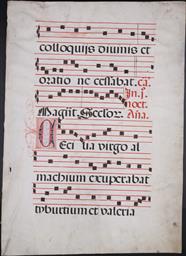 colloquijs diuinis et
oratio ne cessabat. ca.
In. j.
noct.
Magñt. Seclor. Aña.
Ceci lia virgo al
machium exuperabat
tyburtium et valeria